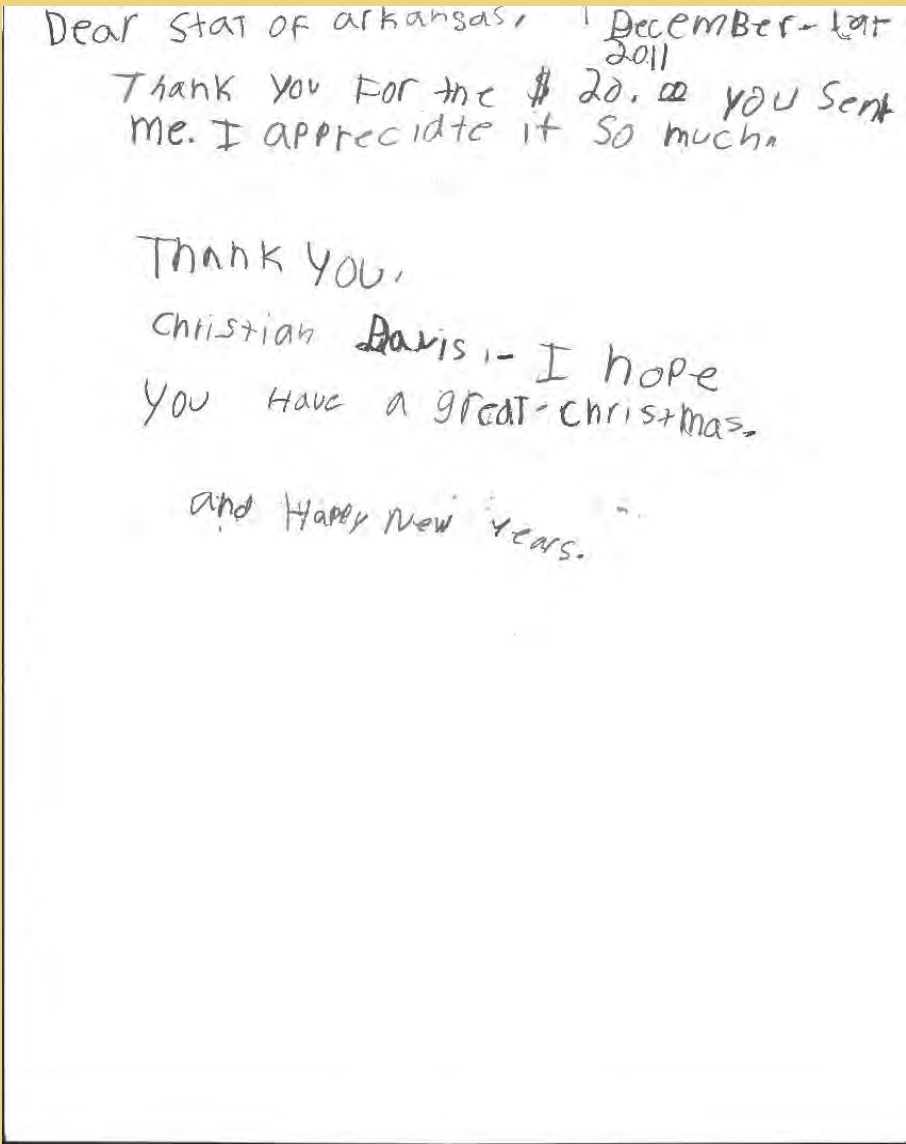 Dear Stat of arkansas, December-
2011
Thank you For the $ 20.00 you Sent
me. I appreciate it So much.
Thank you,
Christian Davis,- I hope
You Have a great-christmas.
and Happy New Years.